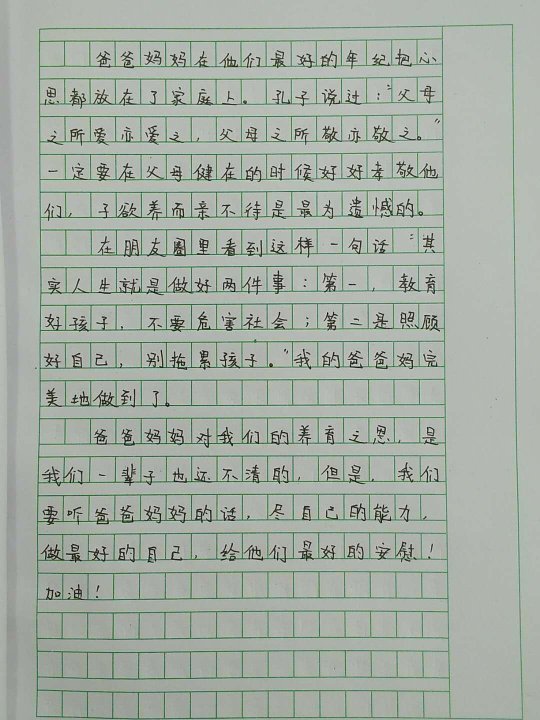 爸爸妈妈在他们最好的年纪把心
思都放在了家庭上。孔子说过：“父母
之所爱亦爱之，父母之所敬亦敬之。”
一定要在父母健在的时候好好孝敬他
们，子欲养而亲不待是最为遗憾的。
在朋友圈里看到这样一句话“其
实人生就是做好两件事：第一，教育
好孩子，不要危害社会；第二是照顾
好自己，别拖累孩子。”我的爸爸妈完
美地做到了。
爸爸妈妈对我们的养育之恩，是
我们一辈子也还不清的，但是，我们
要听爸爸妈妈的话，尽自己的能力，
做最好的自己，给他们最好的安慰！
加油！